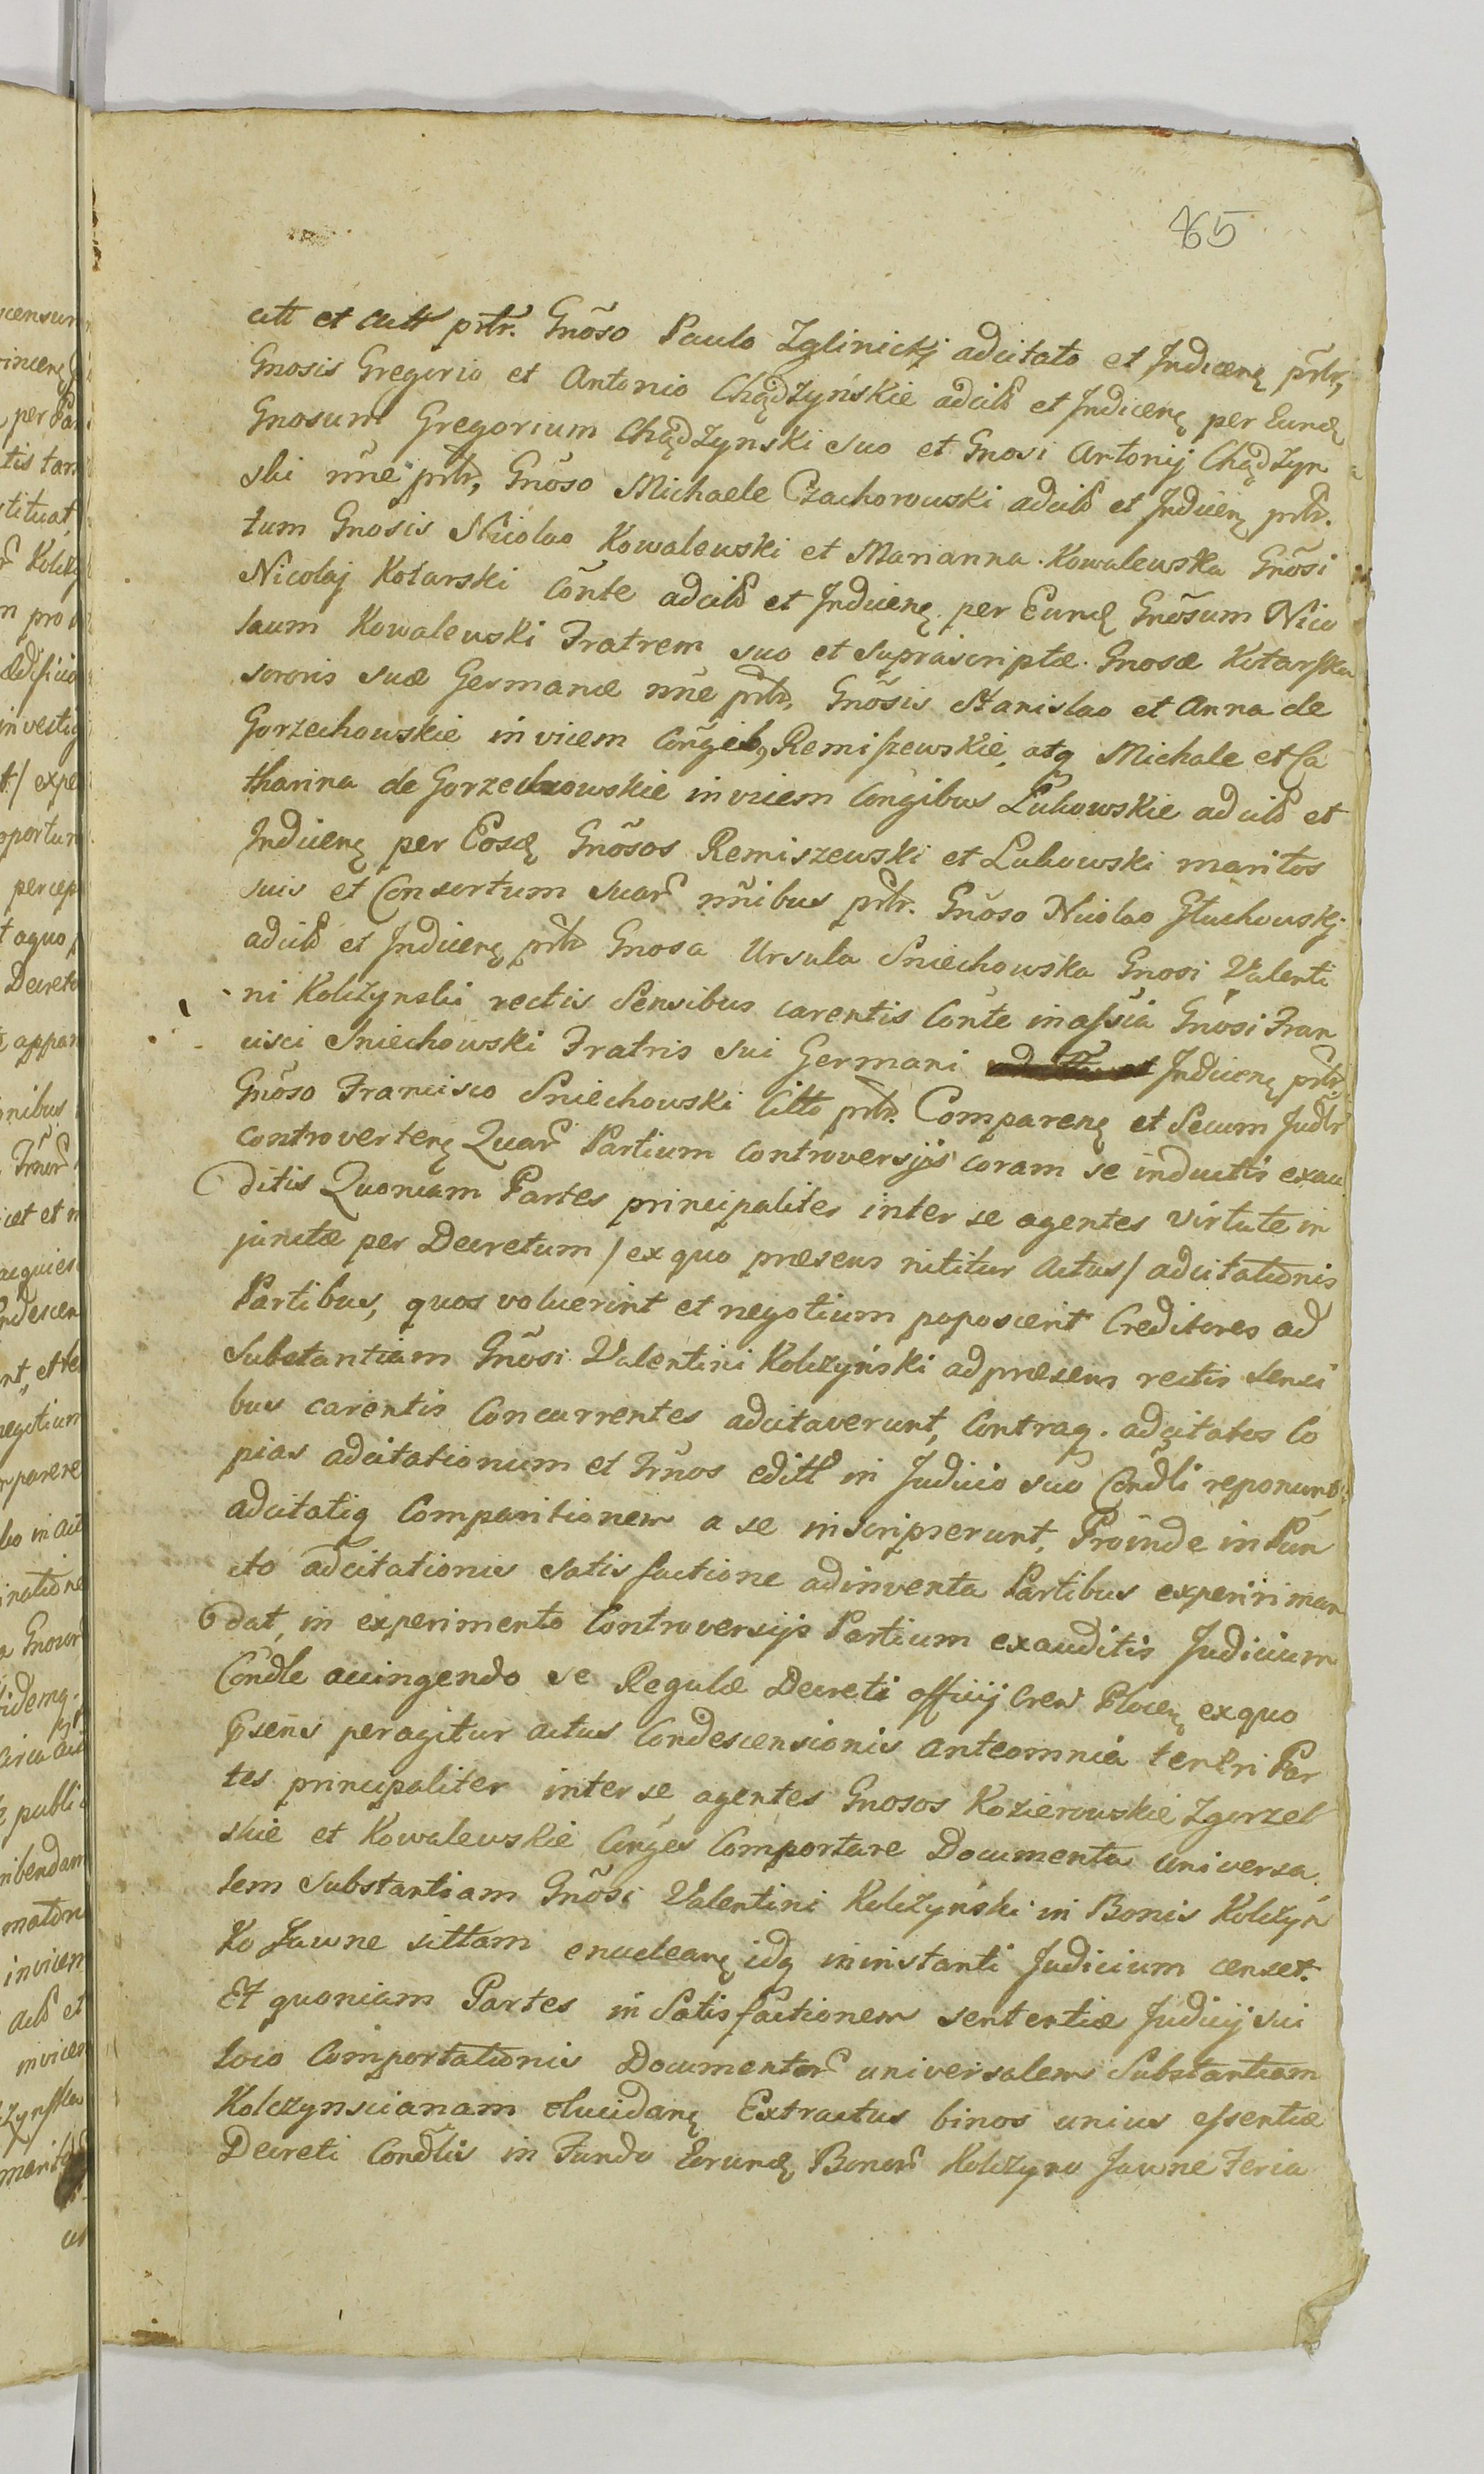 85
citt et citt prtr. Gnõso Paulo Zglinickj adcitato et Indicenę prtr,
Gnosis Gregorio et Antonio Chądzyńskie adcitt et Indicenę per Eundę
Gnosum Gregorium Chądzynski suo et Gnosi Antonij Chądzyn
ski nñe prtr, Gnõso Michaele Czachorowski adcitt et Indicenę prtr.
tum Gnosis Nicolao Kowalewski et Marianna Kowalewska Gnõsi
Nicolaj Kotarski Cõnte adcitt et Indicenę per Eundę Gnõsum Nico
laum Kowalewski Fratrem suo et suprascriptæ Gnosæ Kotarska
sororis suæ Germanæ nñe prtr, Gnõsis Stanislao et Anna de
Gorzechowskie in vicem Congib, Remiszewskie, atq Michale et Ca
tharina de Gorzechowskie in vicem Congibus Lukowskie adcitt et
Indicenę per Eosdę Gnõsos Remiszewski et Lukowski maritos
suis et Consortum suar nñibus prtr. Gnõso Nicolao Głuchowskj
adcitt et Indicenę prtr Gnosa Ursula Sniechowska Gnosi Valenti
ni Kolczynski rectis Sensibus carentis Conte in assia Gnosi Fran
cisci Sniechowski Fratris sui Germani Indicenę prtr
Gnõso Francisco Sniechowski Citto prtr. Comparenę et Secum Judtr
controvertenę Quar Partium controversijs coram se inductis exau
ditis Quoniam Partes principaliter inter se agentes virtute in
junctæ per Decretum / ex quo præsens nititur Actus / adcitationis
Partibus, quos voluerint et negotium poposcerit Creditores ad
Substantiam Gnõsi Valentini Kolczyński ad præsens rectis sensi
bus carentis Concurrentes adcitaverunt, Contraq. adcitatos Co
pias adcitationum et Trnos editt in Judicio suo Condli reponunt
adcitatiq Comparitionem a se inscripserunt, Proinde in Pun
cto adcitationis satisfactione adinventa Partibus experiri man
dat, in experimento Controversijs Partium exauditis Judicium
Condle accingendo se Regulæ Decreti officij Cren Plocen ex quo
Psens peragitur actus Condescensionis anteomnia teneri Par
tes principaliter inter se agentes Gnosos Kozierowskie Zgorzel
skie et Kowalewskie Conges Comportare Documenta universa
lem Substantiam Gnõsi Valentini Kolczyński in Bonis Kolczyn
ko Jawne sittam enucleanę idq in instanti Judicium censet.
Et quoniam Partes in Satisfactionem sententiæ Judicij sui
loco Comportationis Documentor universalem Substantiam
Kolczynscianam elucidanę Extractus binos unius essentiæ
Decreti Condlis in Fundo Eorundę Bonor Kolczyno Jawne Feria